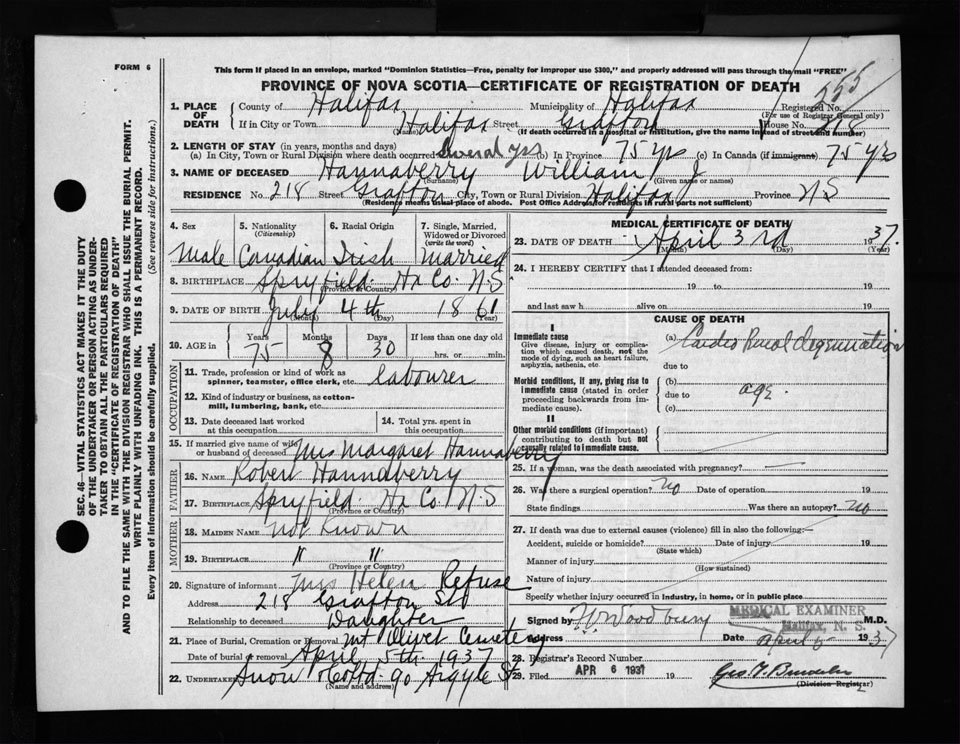 FORM 6
This form if placed in an envelope, marked "Dominion Statistics—Free, penalty for improper use $300," and properly addressed will pass through the mail "FREE"
PROVINCE OF NOVA SCOTIA—CERTIFICATE OF REGISTRATION OF DEATH
555
1. PLACE OF DEATH County of Halifax Municipality of Halifax Registered No.
(For use of Registrar General only)
If in City or Town Halifax Street Grafton House No. 218
(Name) (If death occurred in a hospital or institution, give the name instead of street and number)
2. LENGTH OF STAY (in years, months and days)
(a) In City, Town or Rural Division where death occurred Several yrs (b) In Province 75 yrs (c) In Canada (if immigrant) 75 yrs
3. NAME OF DECEASED Hannaberry William J
(Surname) (Given name or names)
RESIDENCE No. 218 Street Grafton City, Town or Rural Division Halifax Province N S
(Residence means usual place of abode. Post Office Address for residents in rural parts not sufficient)
4. Sex 5. Nationality (Citizenship) 6. Racial Origin 7. Single, Married, Widowed or Divorced (write the word)
Male Canadian Irish Married
8. BIRTHPLACE Spryfield Hx Co. N.S
(Province or Country)
9. DATE OF BIRTH July 4th 1861
(Month) (Day) (Year)
10. AGE in Years Months Days If less than one day old
75 8 30 hrs. or min.
OCCUPATION
11. Trade, profession or kind of work as spinner, teamster, office clerk, etc. labourer
12. Kind of industry or business, as cotton-mill, lumbering, bank, etc.
13. Date deceased last worked at this occupation
14. Total yrs. spent in this occupation
15. If married give name of wife or husband of deceased Mrs Margaret Hannaberry
FATHER
16. NAME Robert Hannaberry
17. BIRTHPLACE Spryfield Hx Co N.S
(Province or Country)
MOTHER
18. MAIDEN NAME not known
19. BIRTHPLACE " "
(Province or Country)
20. Signature of informant Mrs Helen Refuse
Address 218 Grafton St
Relationship to deceased Daughter
21. Place of Burial, Cremation or Removal Mt Olivet Cemetery
Date of burial or removal April 5th 1937
22. UNDERTAKER Snow & Co Ltd. 90 Argyle St
(Name and address)
MEDICAL CERTIFICATE OF DEATH
23. DATE OF DEATH April 3rd 1937
(Month) (Day) (Year)
24. I HEREBY CERTIFY that I attended deceased from:
19 to 19
and last saw h alive on 19
CAUSE OF DEATH
I
Immediate cause
Give disease, injury or complication which caused death, not the mode of dying, such as heart failure, asphyxia, asthenia, etc.
(a) Cardio Renal degeneration
due to
Morbid conditions, if any, giving rise to immediate cause (stated in order proceeding backwards from immediate cause).
(b) age.
due to
(c)
II
Other morbid conditions (if important) contributing to death but not causally related to immediate cause.
25. If a woman, was the death associated with pregnancy? —
26. Was there a surgical operation? no Date of operation 19
State findings Was there an autopsy? no
27. If death was due to external causes (violence) fill in also the following:—
Accident, suicide or homicide? Date of injury 19
(State which)
Manner of injury
(How sustained)
Nature of injury
Specify whether injury occurred in industry, in home, or in public place
Signed by W. Woodbury M.D.
MEDICAL EXAMINER
Halifax, N. S.
Address Date April 5 1937
28. Registrar's Record Number
29. Filed APR 6 1937 19
(Division Registrar)
SEC. 46—VITAL STATISTICS ACT MAKES IT THE DUTY
OF THE UNDERTAKER OR PERSON ACTING AS UNDER-
TAKER TO OBTAIN ALL THE PARTICULARS REQUIRED
IN THE "CERTIFICATE OF REGISTRATION OF DEATH"
AND TO FILE THE SAME WITH THE DIVISION REGISTRAR WHO SHALL ISSUE THE BURIAL PERMIT.
WRITE PLAINLY WITH UNFADING INK. THIS IS A PERMANENT RECORD.
Every item of information should be carefully supplied. (See reverse side for instructions.)